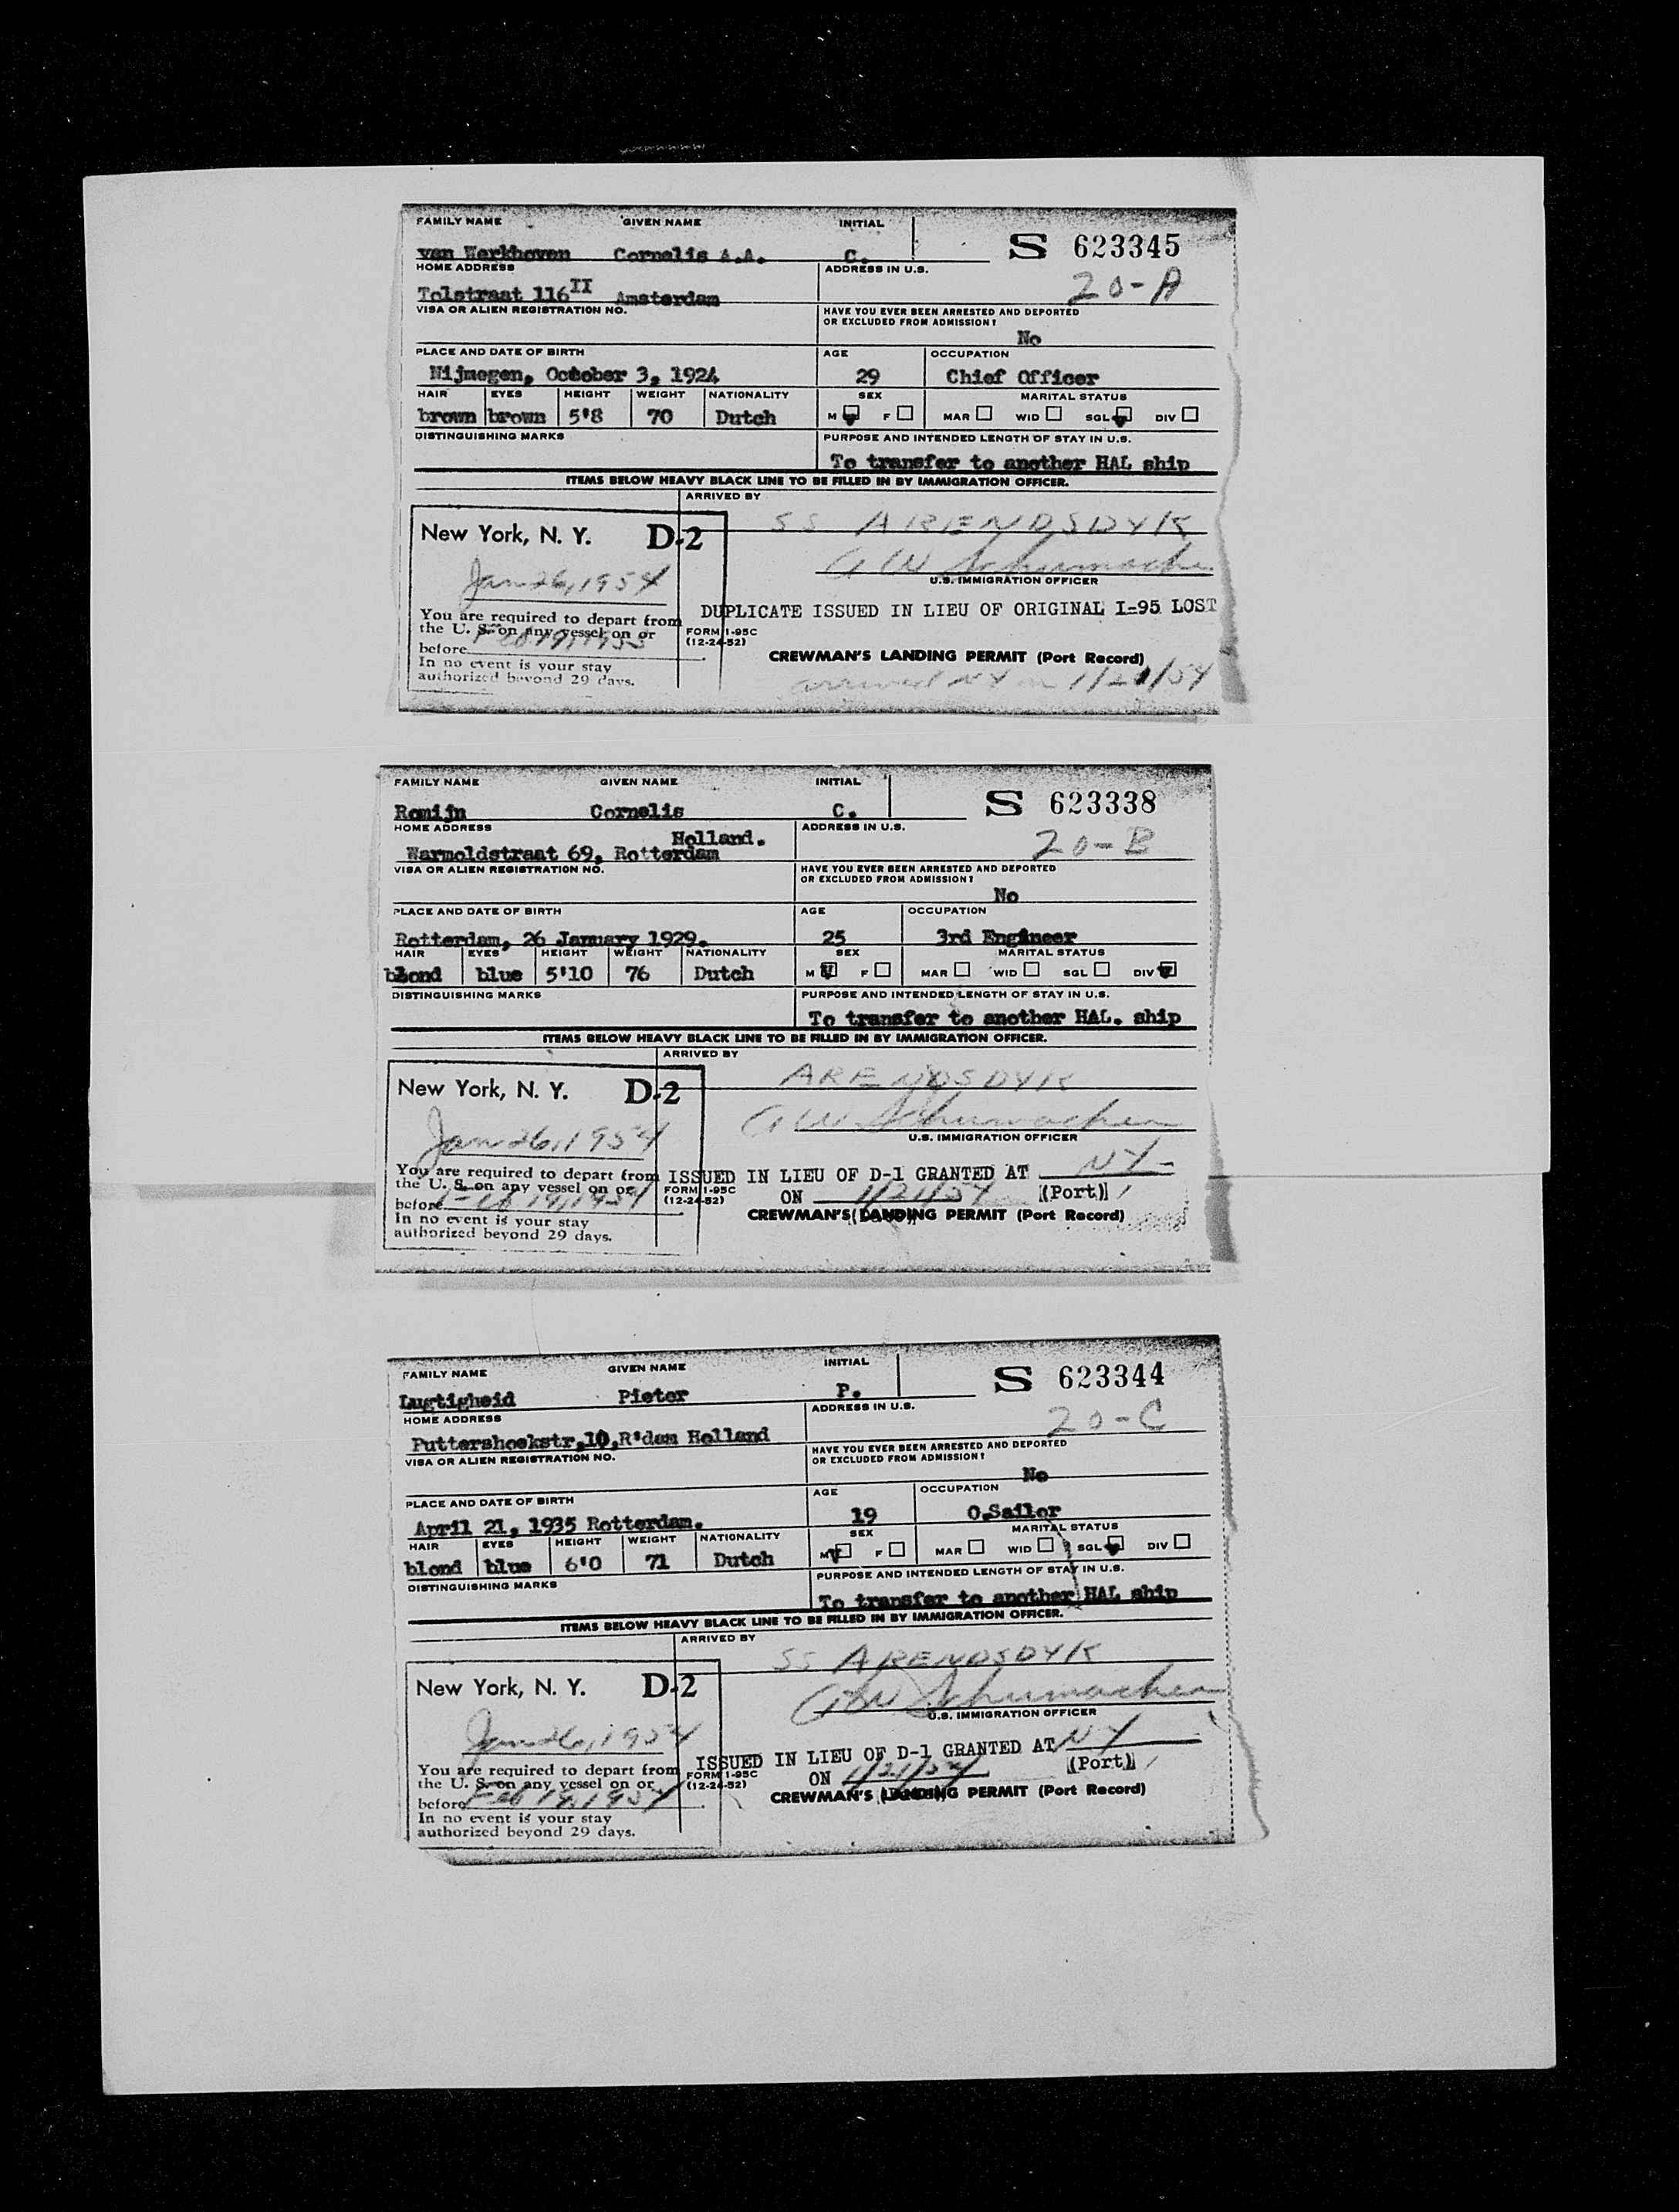 FAMILY NAME GIVEN NAME INITIAL
van Werkhoven Cornelis A.A. C. S 623345
HOME ADDRESS ADDRESS IN U.S. 20-A
Tolstraat 116 II Amsterdam
VISA OR ALIEN REGISTRATION NO. HAVE YOU EVER BEEN ARRESTED AND DEPORTED
OR EXCLUDED FROM ADMISSION?
No
PLACE AND DATE OF BIRTH AGE OCCUPATION
Nijmegen, October 3, 1924 29 Chief Officer
HAIR EYES HEIGHT WEIGHT NATIONALITY SEX MARITAL STATUS
brown brown 5'8 70 Dutch M F MAR WID SGL DIV
DISTINGUISHING MARKS PURPOSE AND INTENDED LENGTH OF STAY IN U.S.
To transfer to another HAL ship
ITEMS BELOW HEAVY BLACK LINE TO BE FILLED IN BY IMMIGRATION OFFICER.
ARRIVED BY
New York, N. Y. D-2 SS ARENDSDYK
Jan 26, 1954 G W Schumacher
U.S. IMMIGRATION OFFICER
You are required to depart from DUPLICATE ISSUED IN LIEU OF ORIGINAL I-95 LOST
the U. S. on any vessel on or FORM I-95C
before (12-24-52)
In no event is your stay CREWMAN'S LANDING PERMIT (Port Record)
authorized beyond 29 days. arrived NY on 1/21/54
FAMILY NAME GIVEN NAME INITIAL
Romijn Cornelis C. S 623338
HOME ADDRESS ADDRESS IN U.S. 20-B
Holland.
Warmoldstraat 69, Rotterdam
VISA OR ALIEN REGISTRATION NO. HAVE YOU EVER BEEN ARRESTED AND DEPORTED
OR EXCLUDED FROM ADMISSION?
No
PLACE AND DATE OF BIRTH AGE OCCUPATION
Rotterdam, 26 January 1929. 25 3rd Engineer
HAIR EYES HEIGHT WEIGHT NATIONALITY SEX MARITAL STATUS
blond blue 5'10 76 Dutch M F MAR WID SGL DIV
DISTINGUISHING MARKS PURPOSE AND INTENDED LENGTH OF STAY IN U.S.
To transfer to another HAL. ship
ITEMS BELOW HEAVY BLACK LINE TO BE FILLED IN BY IMMIGRATION OFFICER.
ARRIVED BY
New York, N. Y. D-2 ARENDSDYK
Jan 26, 1954 G W Schumacher
U.S. IMMIGRATION OFFICER
You are required to depart from ISSUED IN LIEU OF D-1 GRANTED AT NY
the U. S. on any vessel on or FORM I-95C ON 1/21/54 (Port)
before Feb 19, 1954 (12-24-52)
In no event is your stay CREWMAN'S LANDING PERMIT (Port Record)
authorized beyond 29 days.
FAMILY NAME GIVEN NAME INITIAL
Lugtigheid Pieter P. S 623344
HOME ADDRESS ADDRESS IN U.S. 20-C
Puttershoekstr,10,R'dam Holland
VISA OR ALIEN REGISTRATION NO. HAVE YOU EVER BEEN ARRESTED AND DEPORTED
OR EXCLUDED FROM ADMISSION?
No
PLACE AND DATE OF BIRTH AGE OCCUPATION
April 21, 1935 Rotterdam. 19 O.Sailor
HAIR EYES HEIGHT WEIGHT NATIONALITY SEX MARITAL STATUS
blond blue 6'0 71 Dutch M F MAR WID SGL DIV
DISTINGUISHING MARKS PURPOSE AND INTENDED LENGTH OF STAY IN U.S.
To transfer to another HAL ship
ITEMS BELOW HEAVY BLACK LINE TO BE FILLED IN BY IMMIGRATION OFFICER.
ARRIVED BY
New York, N. Y. D-2 SS ARENDSDYK
Jan 26, 1954 G W Schumacher
U.S. IMMIGRATION OFFICER
You are required to depart from ISSUED IN LIEU OF D-1 GRANTED AT NY
the U. S. on any vessel on or FORM I-95C ON 1/21/54 (Port)
before Feb 19, 1954 (12-24-52)
In no event is your stay CREWMAN'S LANDING PERMIT (Port Record)
authorized beyond 29 days.